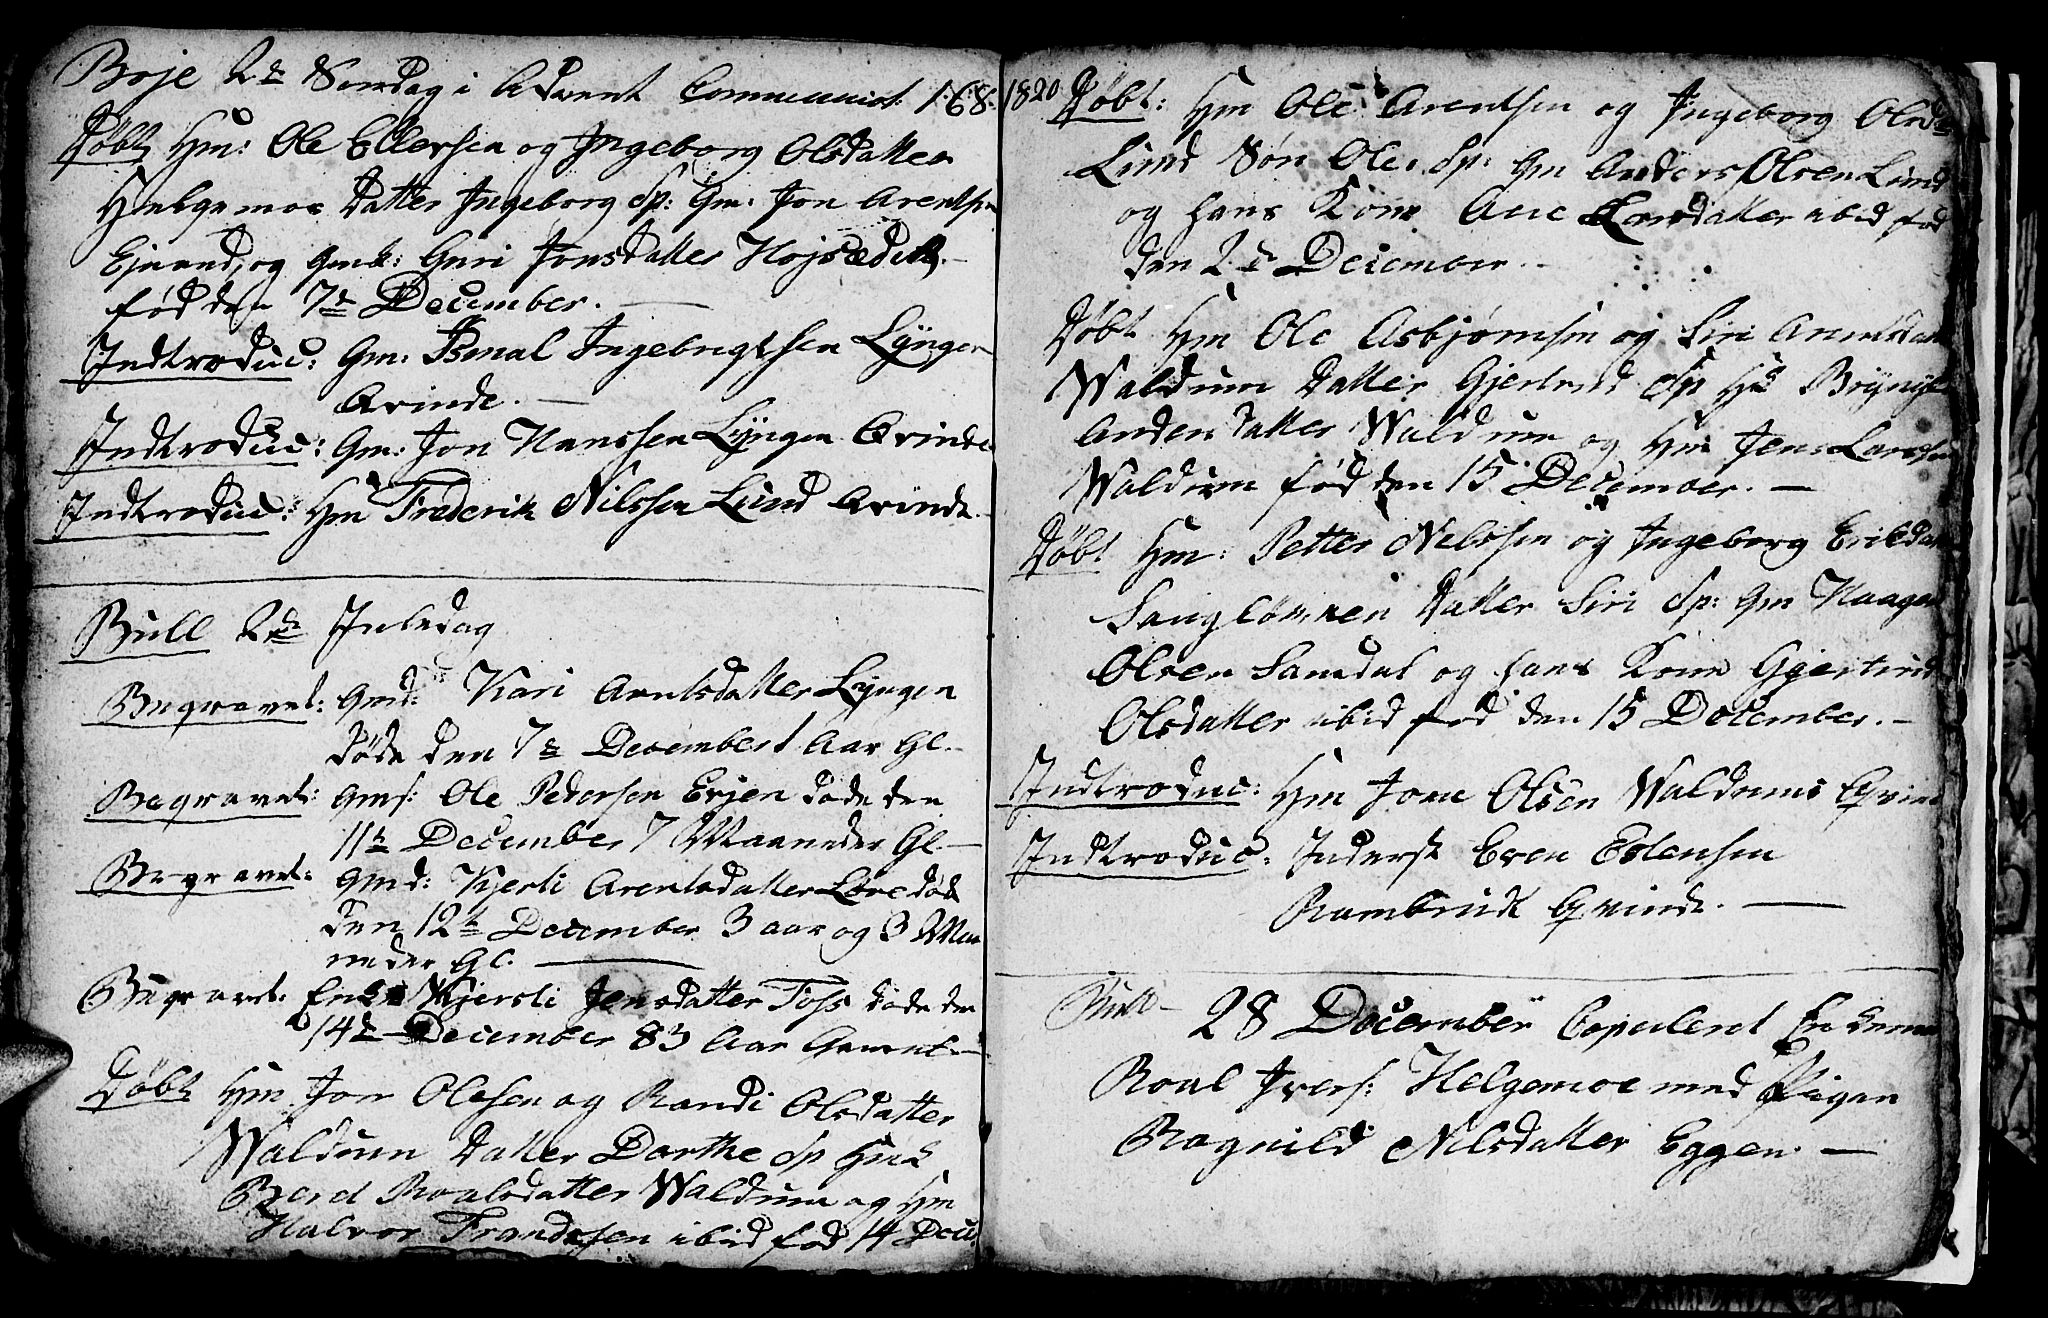 Boje 2de Søndag i Advent Communicat: 168.
Døbt Hm: Ole Ellefsen og Ingeborg Olsdatter
Helgemoe Datter Ingeborg Sp: Gm: Jon Arentsen
og Gmk: Guri Jonsdatter
fød den 7de December. —
Introduc: Gm: Ingebrigtsen Lyngen
Qvinde. —
Introduc: Gm: Jon Hanssen Lyngen Qvinde
Introduc: Hm Frederik Nilssen Lund Qvinde.
Bull 2den Juledag
Begravet: Gmd: Kari Arntsdatter Lyngen
døde den 7de December 1 Aar Gl. —
Begravet: Gms: Ole Pedersen døde den
11te December 7 Maaneder Gl. —
Begravet: Gmd: Kjersti Arentsdatter døde
den 12te December 3 aar og 3 Maa
neder Gl. —
Begravet: Enke Kjersti Jensdatter Foss døde den
14de December 83 Aar Gammel. —
Døbt Hm Jon Olesen og Randi Olsdatter
Waldum Datter Dorthe Sp
Roalsdatter Waldum og Hm
Halvor Frandssen ibid fød 14 Dec:
1820
Døbt: Hm Ole Arentsen og Ingeborg Olsd
Lund Søn Ole. Sp: Gm Anders Olsen Lund
og hans Kone Ane Larsdatter ibid fød
den 2de December. —
Døbt Hm Ole Asbjørnsen og Siri
Waldum Datter Gjertrud Sp
Andersdatter Waldum og Hm Jens Larssen
Waldum fød den 15 December. —
Døbt Hm: Petter Nelssen og Ingeborg
Datter Siri Sp: Gm Haagen
Olsen Samdal og hans Kone Gjertrud
Olsdatter ibid fød den 15 December. —
Introduc: Hm Jon Olsen Waldums Qvinde
Introduc: Inderst Even Estensen
Qvinde. —
Bull – 28 December Copuleret Enkeman
Roal Ivers: Helgemoe med Pigen
Ragnild Nilsdatter Eggen. —